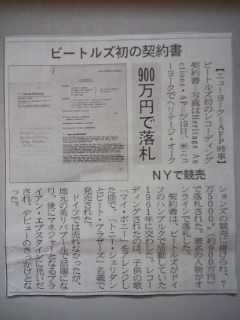 ビートルズ初の契約書
900万円で落札
NYで競売
【ニューヨークAFP時事】
ビートルズ初のレコーディング
契約書=写真はHeritage Au
ctions・AFP=が19日、米ニュ
ーヨークでヘリテージ・オーク
ションズの競売に掛けられ、
万5000㌦(約900万円)
で落札された。匿名の人物がオ
ンラインで落札した。
契約書は、ビートルズがドイ
ツのハンブルクで活動していた
1961年に交わした。レコー
ディングされたのは、子供の歌
「マイ・ボニー」をアレンジし
た曲で、「トニー・シェリダン
とビート・ブラザーズ」名義で
発売された。
ドイツでは売れなかったが、
地元の英リバプールで話題にな
り、後にマネジャーとなるブラ
イアン・エプスタインに見いだ
され、デビューのきっかけとな
った。